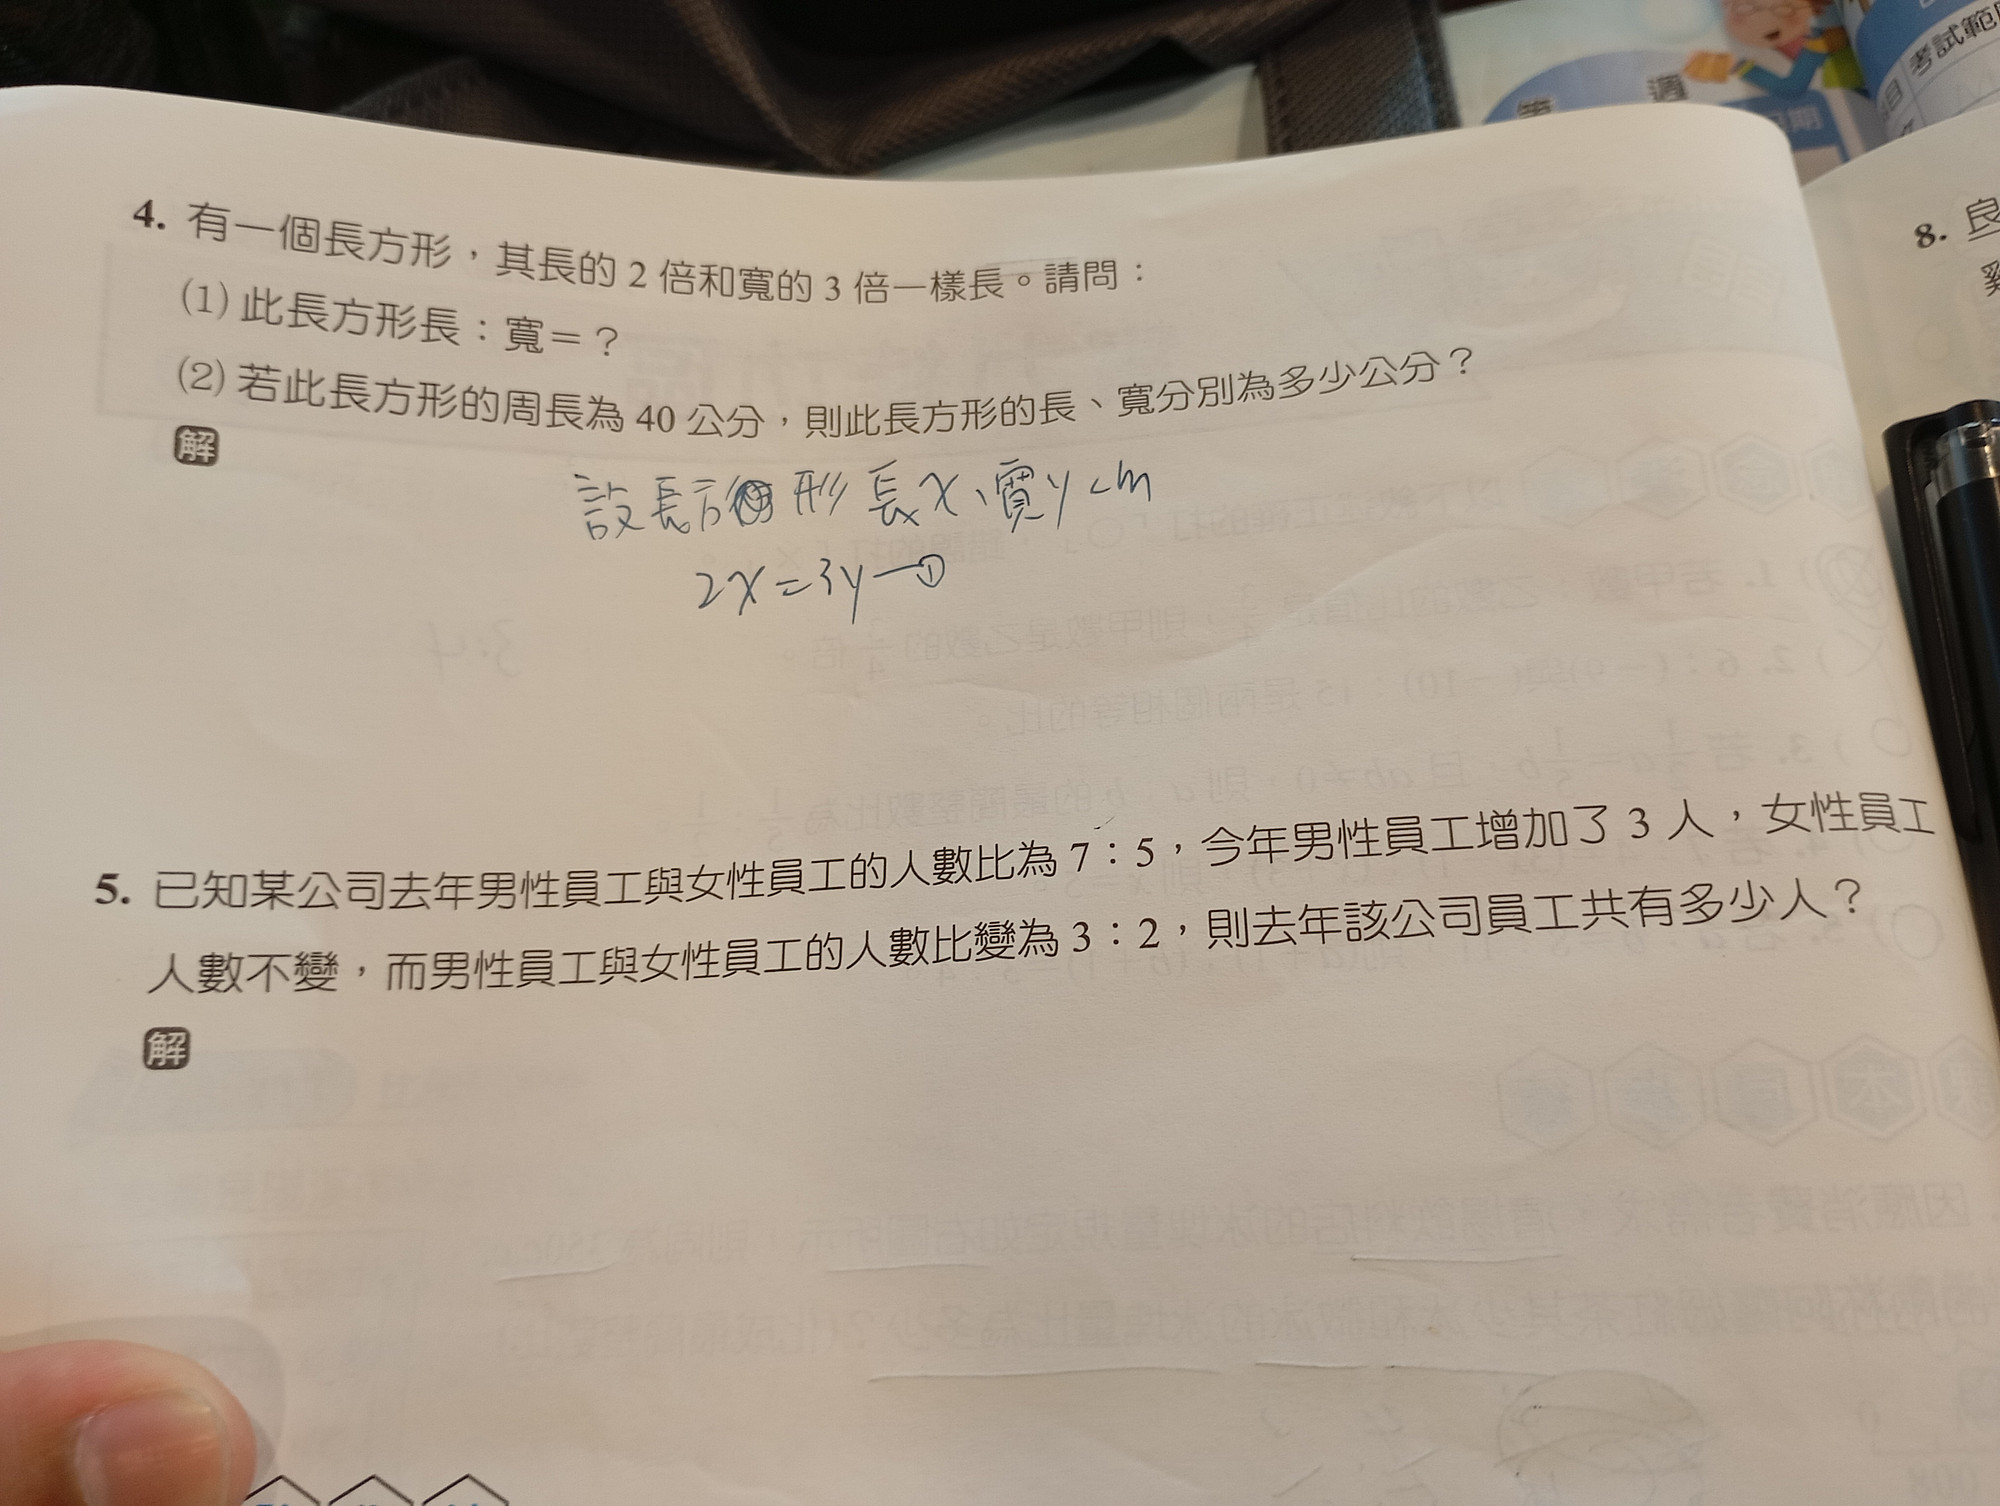 4. 有一個長方形，其長的 2 倍和寬的 3 倍一樣長。請問：
(1) 此長方形長：寬＝？
(2) 若此長方形的周長為 40 公分，則此長方形的長、寬分別為多少公分？
解
設長方形長x、寬y cm
2x=3y—①
5. 已知某公司去年男性員工與女性員工的人數比為 7：5，今年男性員工增加了 3 人，女性員工
人數不變，而男性員工與女性員工的人數比變為 3：2，則去年該公司員工共有多少人？
解
8. 良
考試範
週
期